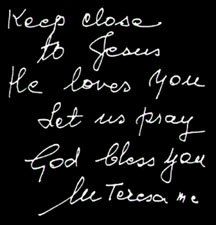 Keep close
to Jesus
He loves you
Let us pray
God bless you
M Teresa mc